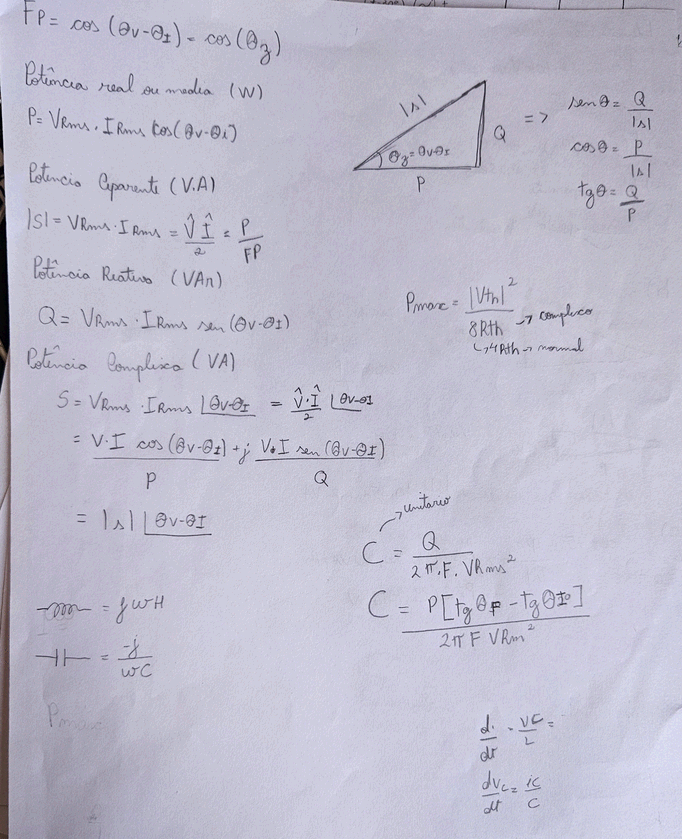 FP = cos (θv-θI) = cos(θz)
Potência real ou media (W)
P = VRms . IRms cos(θv-θi)
Potencia Aparente (V.A)
|S| = VRms . IRms = V̂ Î / 2 = P / FP
Potência Reativa (VAr)
Q = VRms . IRms sen (θv-θI)
Potência Complexa (VA)
S = VRms . IRms ∠θv-θI = V̂.Î / 2 ∠θv-θI
= V.I cos(θv-θI) + j V.I sen(θv-θI)
P Q
= |s| ∠θv-θI
= jWH
= -j / WC
|s|
θz = θv-θI
Q
P
=> senθ = Q / |s|
cosθ = P / |s|
tgθ = Q / P
Pmax = |Vth|² / 8Rth → complexo
↳ 4Rth → normal
→ unitario
C = Q / 2π.F.VRms²
C = P[tgθF - tgθIo] / 2πF VRm²
di / dt = VC / L =
dvc / dt = ic / C